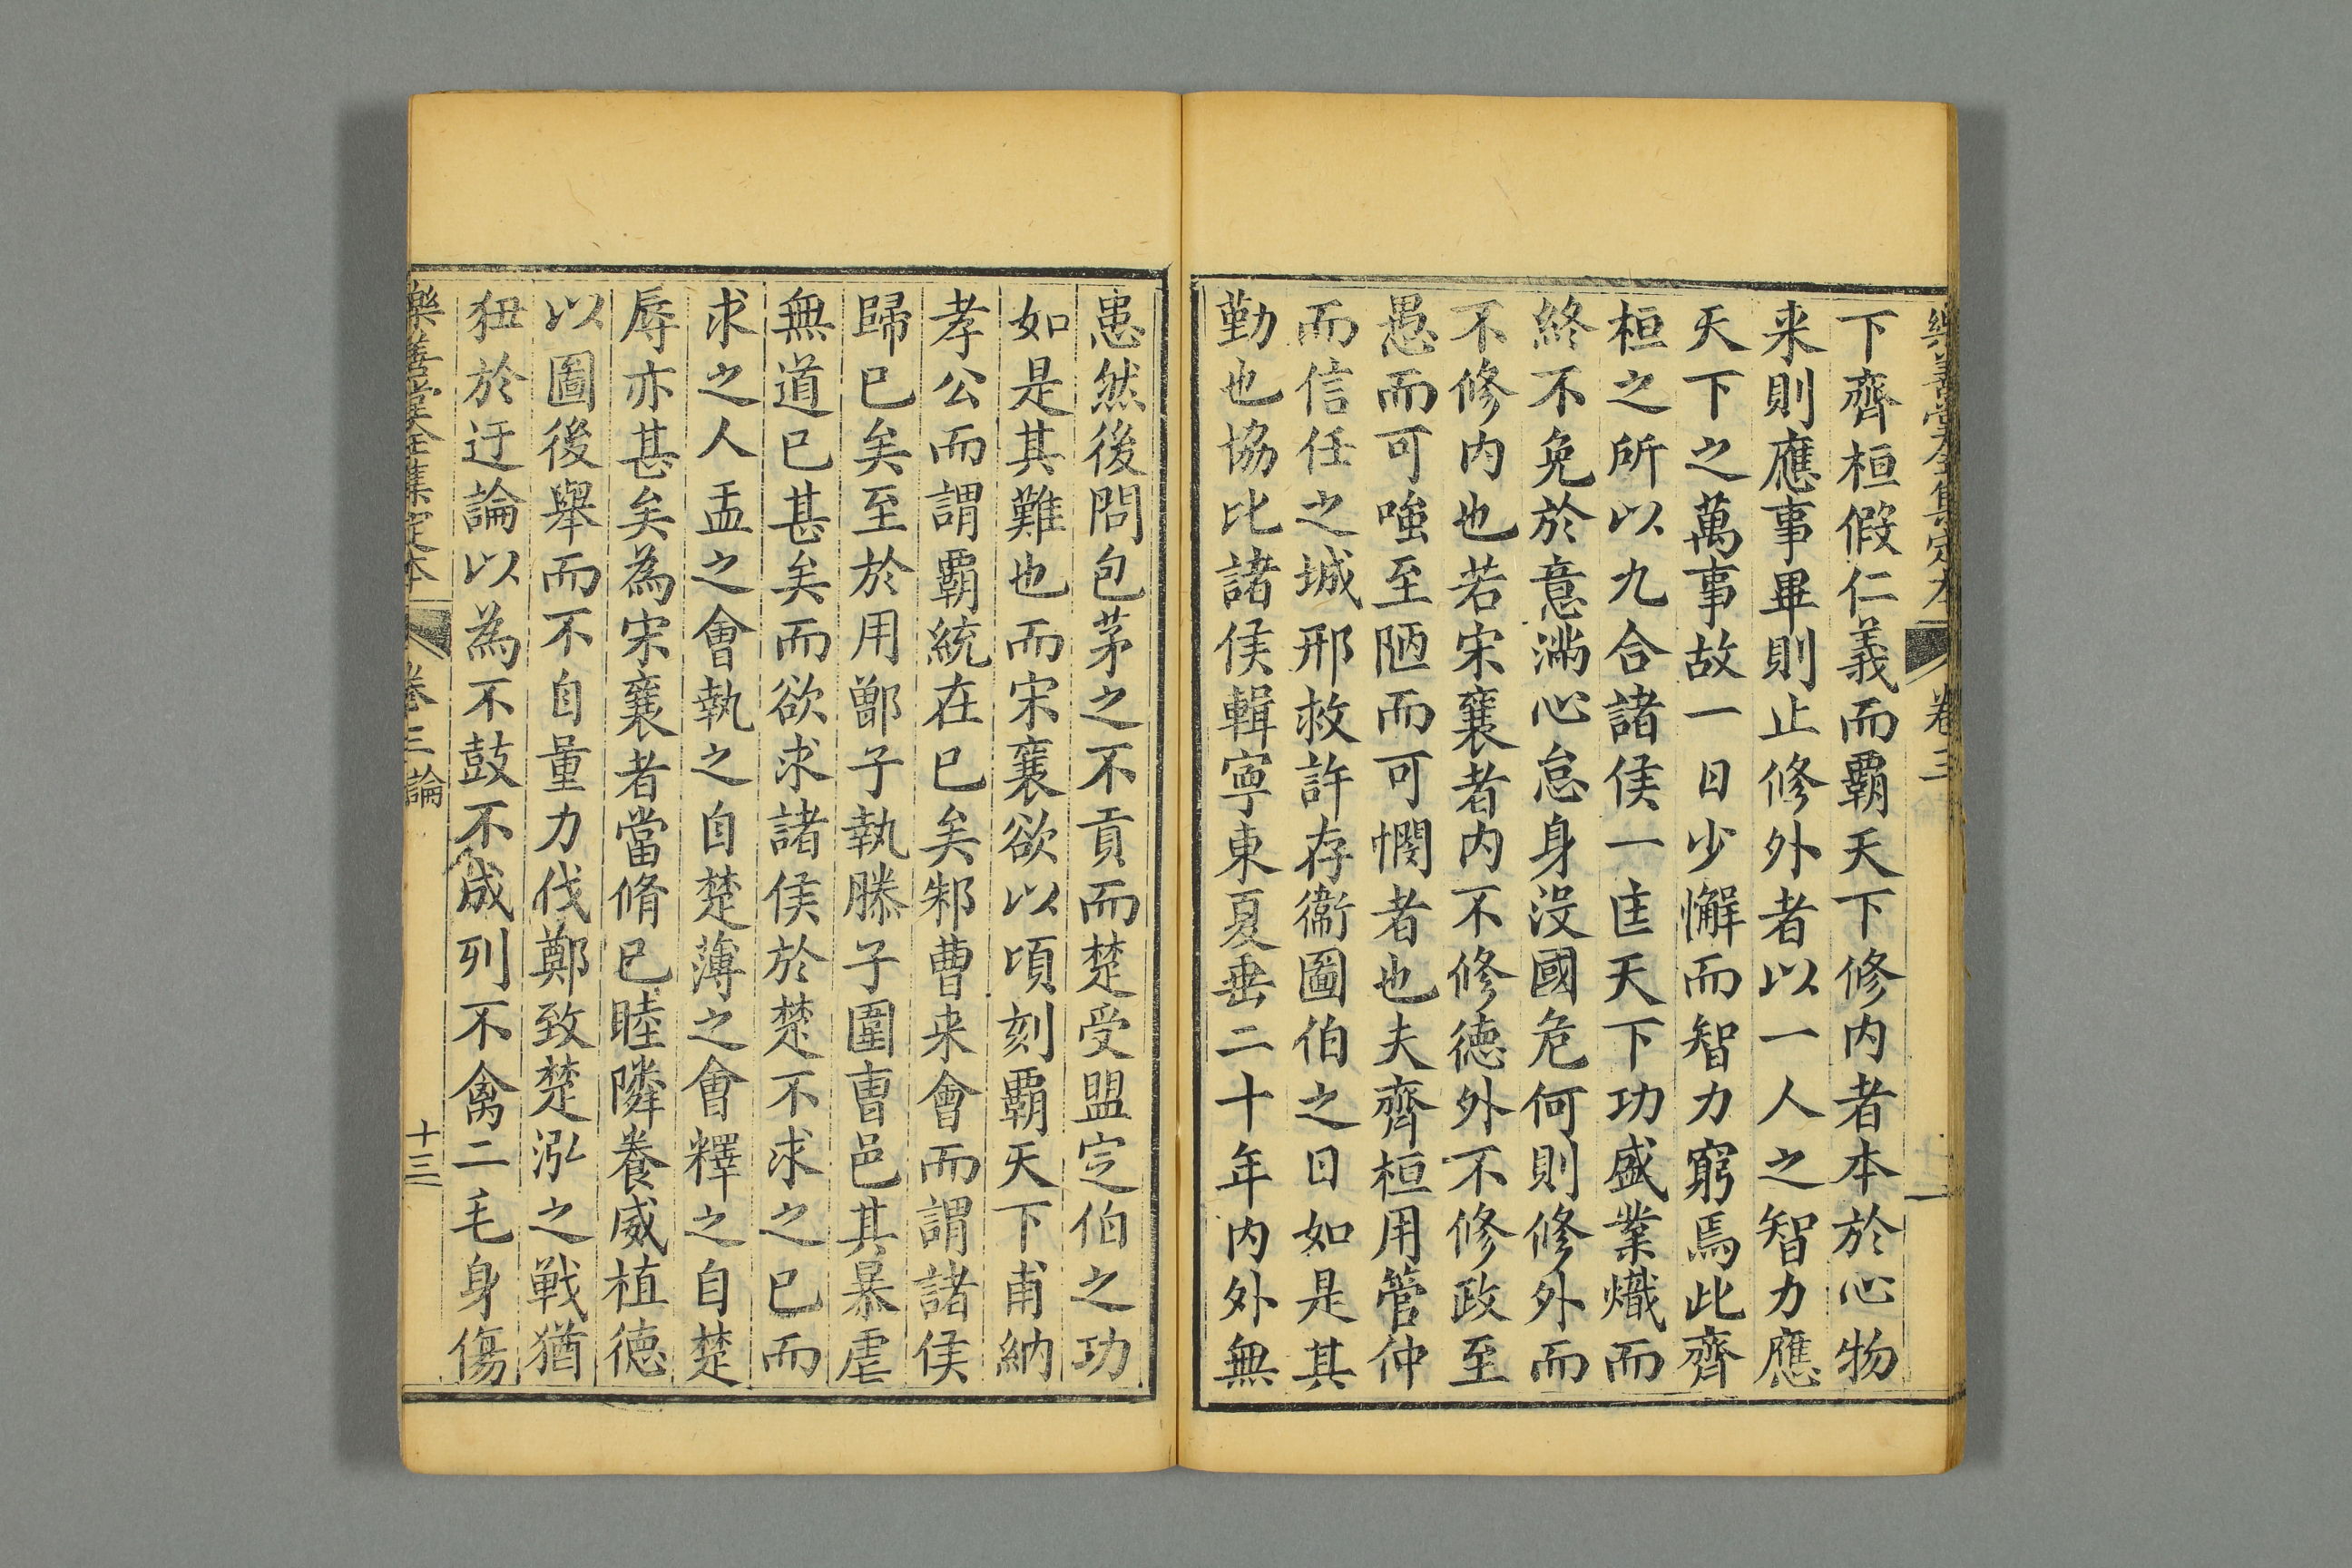 樂善堂全集定本 卷三
下齊桓假仁義而覇天下修内者本於心物
来則應事畢則止修外者以一人之智力應
天下之萬事故一日少懈而智力窮焉此齊
桓之所以九合諸侯一匡天下功盛業熾而
終不免於意滿心怠身沒國危何則修外而
不修内也若宋襄者内不修德外不修政至
愚而可嗤至陋而可憫者也夫齊桓用管仲
而信任之城邢救許存衞圖伯之日如是其
勤也協比諸侯輯寧東夏垂二十年内外無
患然後問包茅之不貢而楚受盟定伯之功
如是其難也而宋襄欲以頃刻覇天下甫納
孝公而謂覇統在已矣邾曹来會而謂諸侯
歸已矣至於用鄫子執滕子圍曹邑其暴虐
無道已甚矣而欲求諸侯於楚不求之已而
求之人盂之會執之自楚薄之會釋之自楚
辱亦甚矣為宋襄者當脩已睦隣養威植德
以圖後舉而不自量力伐鄭致楚泓之戰猶
狃於迂論以為不鼓不成列不禽二毛身傷
樂善堂全集定本 卷三論 十三